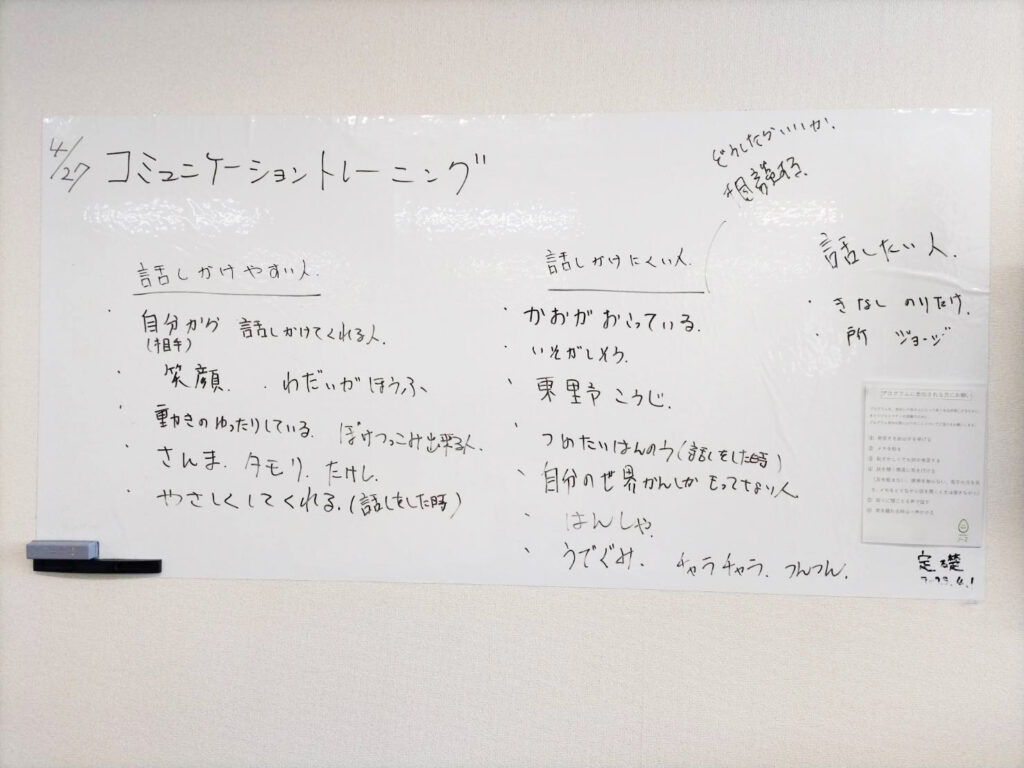 4/27 コミュニケーショントレーニング
どうしたらいいか。
相談する。
話しかけやすい人。
・自分から 話しかけてくれる人。
(相手)
・笑顔。 ・わだいがほうふ
・動きのゆったりしている。 ぼけつっこみ出来る人。
・さんま。タモリ。たけし。
・やさしくしてくれる。(話しをした時)
話しかけにくい人。
・かおがおこっている。
・いそがしそう。
・東野 こうじ。
・つめたいはんのう(話しをした時)
・自分の世界かんしかもってない人
・はんしゃ。
・うでぐみ。 チャラチャラ。つんつん。
話したい人。
・きなし のりたけ。
・所 ジョージ
プログラムに参加される方にお願い
① 発言する前は手を挙げる
② メモを取る
定礎